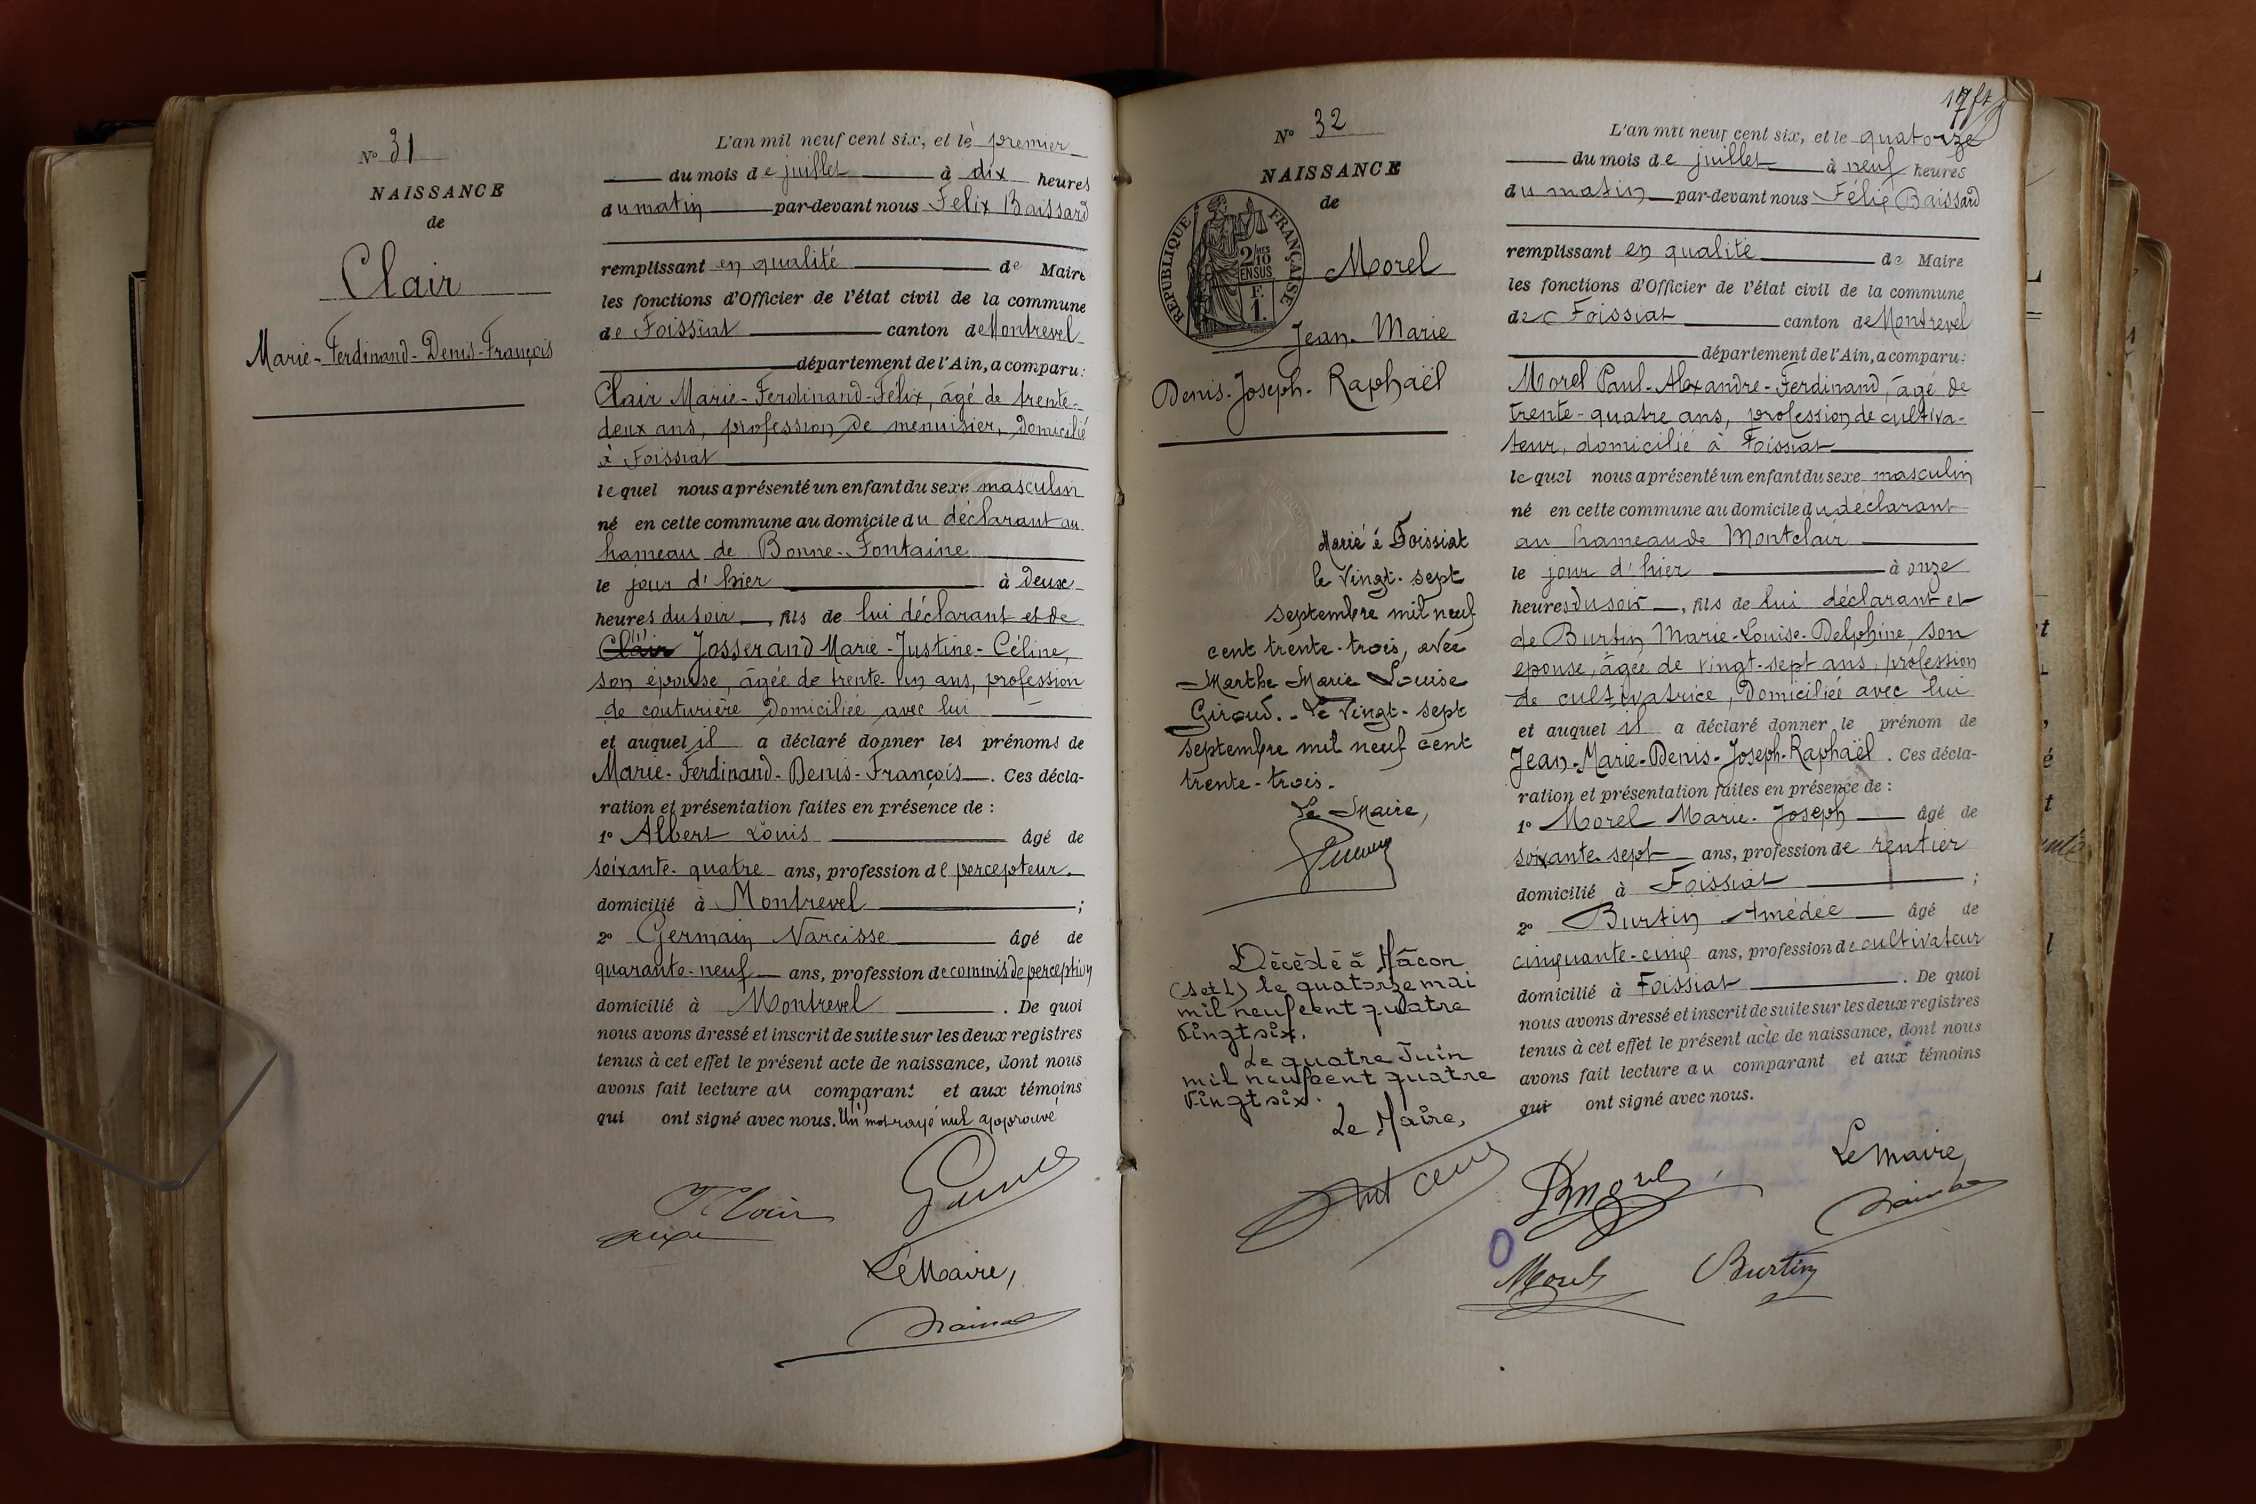 Nº 31
NAISSANCE
de
Clair
Marie-Ferdinand-Denis-François
L'an mil neuf cent six, et le premier
du mois de juillet à dix heures
du matin par-devant nous Félix Baissard
remplissant en qualité de Maire
les fonctions d'Officier de l'état civil de la commune
de Foissiat canton de Montrevel
département de l'Ain, a comparu:
Clair Marie-Ferdinand-Félix, âgé de trente-
deux ans, profession de menuisier, domicilié
à Foissiat
lequel nous a présenté un enfant du sexe masculin
né en cette commune au domicile du déclarant au
hameau de Bonne-Fontaine
le jour d'hier à deux
heures du soir, fils de lui déclarant et de
Clair Josserand Marie-Justine-Céline,
son épouse, âgée de trente-un ans, profession
de couturière domiciliée avec lui
et auquel il a déclaré donner les prénoms de
Marie-Ferdinand-Denis-François. Ces décla-
ration et présentation faites en présence de :
1º Albert Louis âgé de
soixante-quatre ans, profession de percepteur
domicilié à Montrevel ;
2º Germain Narcisse âgé de
quarante-neuf ans, profession de commis de perception
domicilié à Montrevel. De quoi
nous avons dressé et inscrit de suite sur les deux registres
tenus à cet effet le présent acte de naissance, dont nous
avons fait lecture au comparant et aux témoins
qui ont signé avec nous. Un mot rayé nul approuvé
Le Maire,
Nº 32
NAISSANCE
de
RÉPUBLIQUE FRANÇAISE
2/10 EN SUS
1 F.
Morel
Jean-Marie
Denis-Joseph-Raphaël
Marié à Foissiat
le vingt-sept
septembre mil neuf
cent trente-trois, avec
Marthe Marie Louise
Giroud.- Le vingt-sept
septembre mil neuf cent
trente-trois.
Le Maire,
Décédé à Mâcon
(S et L) le quatorze mai
mil neuf cent quatre
vingt six.
Le quatre Juin
mil neuf cent quatre
vingt six.
Le Maire,
L'an mil neuf cent six, et le quatorze
du mois de juillet à neuf heures
du matin par-devant nous Félix Baissard
remplissant en qualité de Maire
les fonctions d'Officier de l'état civil de la commune
de Foissiat canton de Montrevel
département de l'Ain, a comparu:
Morel Paul-Alexandre-Ferdinand, âgé de
trente-quatre ans, profession de cultiva-
teur, domicilié à Foissiat
lequel nous a présenté un enfant du sexe masculin
né en cette commune au domicile du déclarant
au hameau de Montclair
le jour d'hier à onze
heures du soir, fils de lui déclarant et
de Burtin Marie-Louise-Delphine, son
épouse, âgée de vingt-sept ans, profession
de cultivatrice, domiciliée avec lui
et auquel il a déclaré donner le prénom de
Jean-Marie-Denis-Joseph-Raphaël. Ces décla-
ration et présentation faites en présence de :
1º Morel Marie-Joseph âgé de
soixante-sept ans, profession de rentier
domicilié à Foissiat ;
2º Burtin Amédée âgé de
cinquante-cinq ans, profession de cultivateur
domicilié à Foissiat. De quoi
nous avons dressé et inscrit de suite sur les deux registres
tenus à cet effet le présent acte de naissance, dont nous
avons fait lecture au comparant et aux témoins
qui ont signé avec nous.
Le Maire,
Morel
Burtin